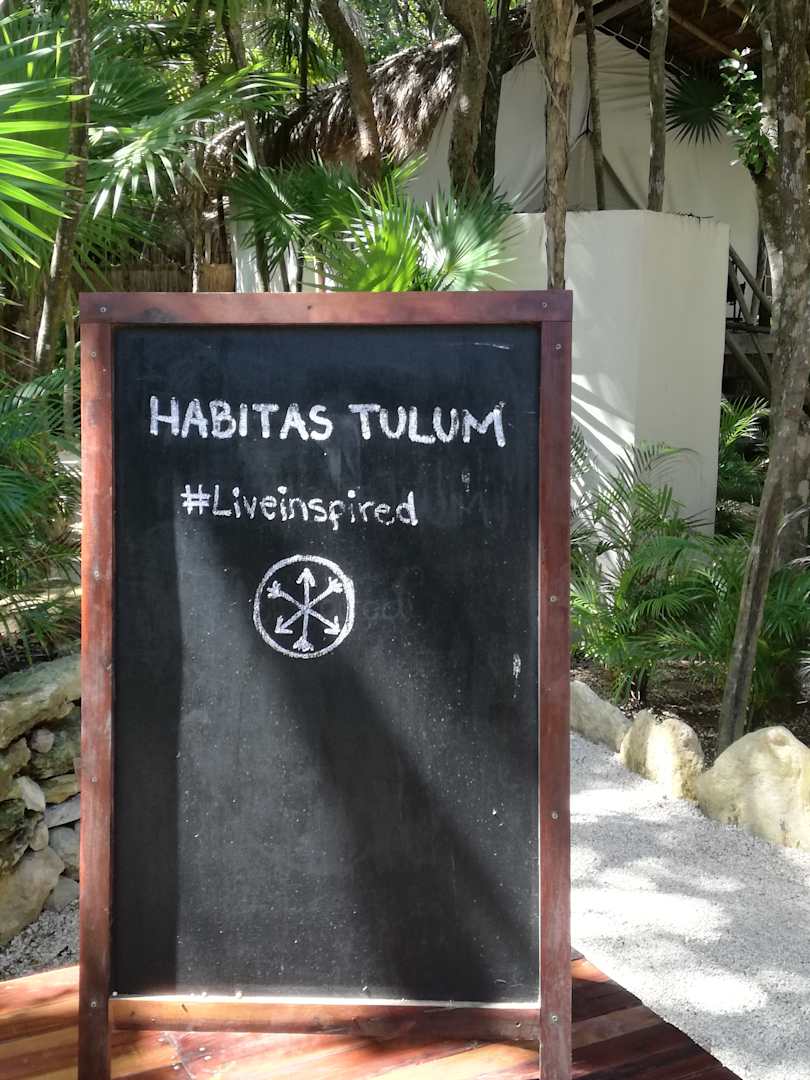 HABITAS TULUM
#Liveinspired